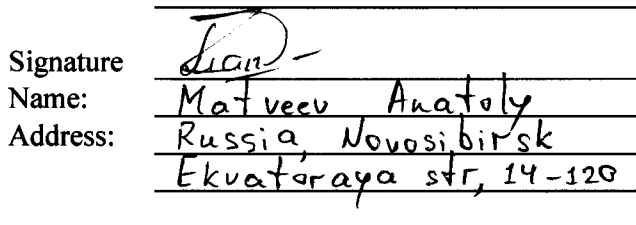 Signature
Name: Matveev Anatoly
Address: Russia, Novosibirsk
Ekvatoraya str, 14-120